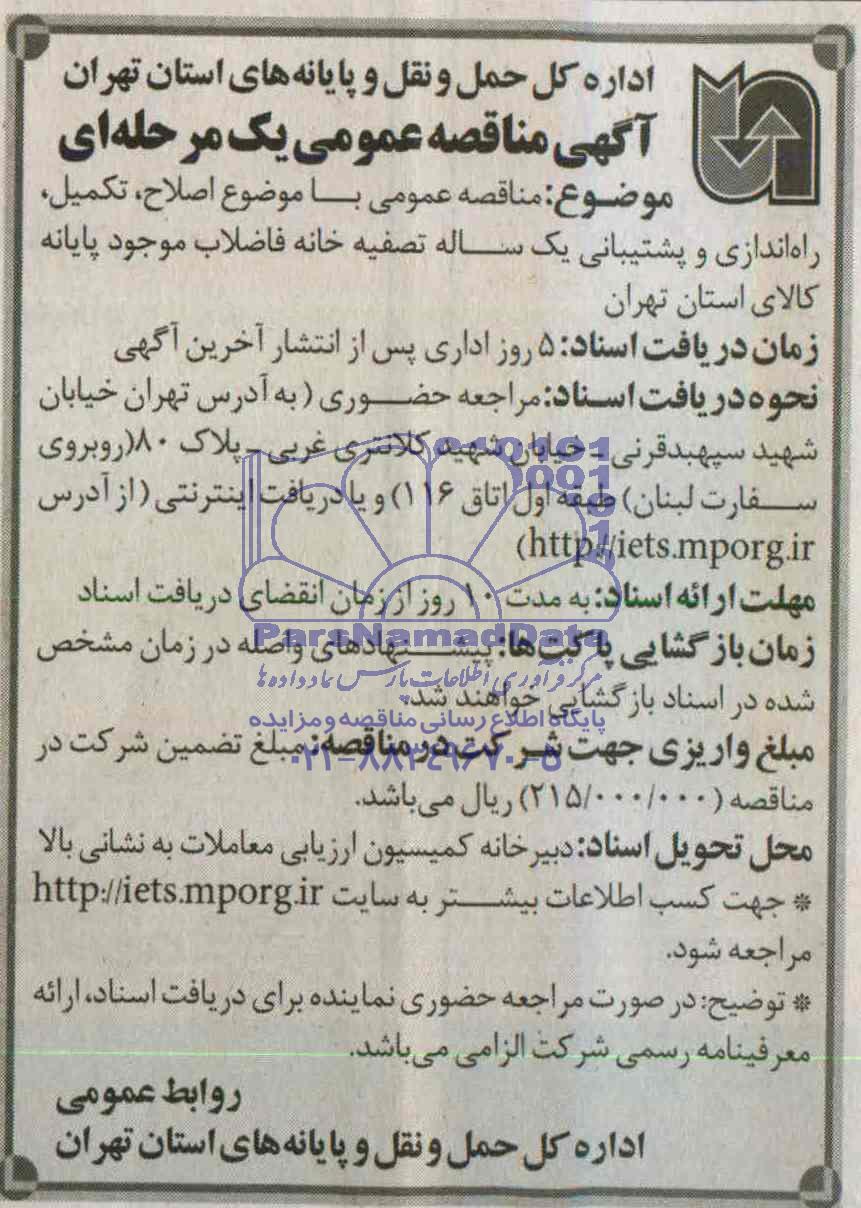 اداره کل حمل و نقل و پایانه‌های استان تهران
آگهی مناقصه عمومی یک مرحله‌ای
موضوع: مناقصه عمومی با موضوع اصلاح، تکمیل،
راه‌اندازی و پشتیبانی یک ساله تصفیه خانه فاضلاب موجود پایانه
کالای استان تهران
زمان دریافت اسناد: ۵ روز اداری پس از انتشار آخرین آگهی
نحوه دریافت اسناد: مراجعه حضوری (به آدرس تهران خیابان
شهید سپهبدقرنی ـ خیابان شهید کلانتری غربی ـ پلاک ۸۰(روبروی
سفارت لبنان) طبقه اول اتاق ۱۱۶) و یا دریافت اینترنتی (از آدرس
http://iets.mporg.ir)
مهلت ارائه اسناد: به مدت ۱۰ روز از زمان انقضای دریافت اسناد
ParsNamadData
زمان بازگشایی پاکت‌ها: پیشنهادهای واصله در زمان مشخص
مرکز فرآوری اطلاعات پارس نماد داده‌ها
شده در اسناد بازگشایی خواهند شد.
پایگاه اطلاع رسانی مناقصه و مزایده
مبلغ واریزی جهت شرکت در مناقصه: مبلغ تضمین شرکت در
۰۲۱-۸۸۳۴۹۶۷۰-۵
مناقصه (۲۱۵/۰۰۰/۰۰۰) ریال می‌باشد.
محل تحویل اسناد: دبیرخانه کمیسیون ارزیابی معاملات به نشانی بالا
* جهت کسب اطلاعات بیشتر به سایت http://iets.mporg.ir
مراجعه شود.
* توضیح: در صورت مراجعه حضوری نماینده برای دریافت اسناد، ارائه
معرفینامه رسمی شرکت الزامی می‌باشد.
روابط عمومی
اداره کل حمل و نقل و پایانه‌های استان تهران